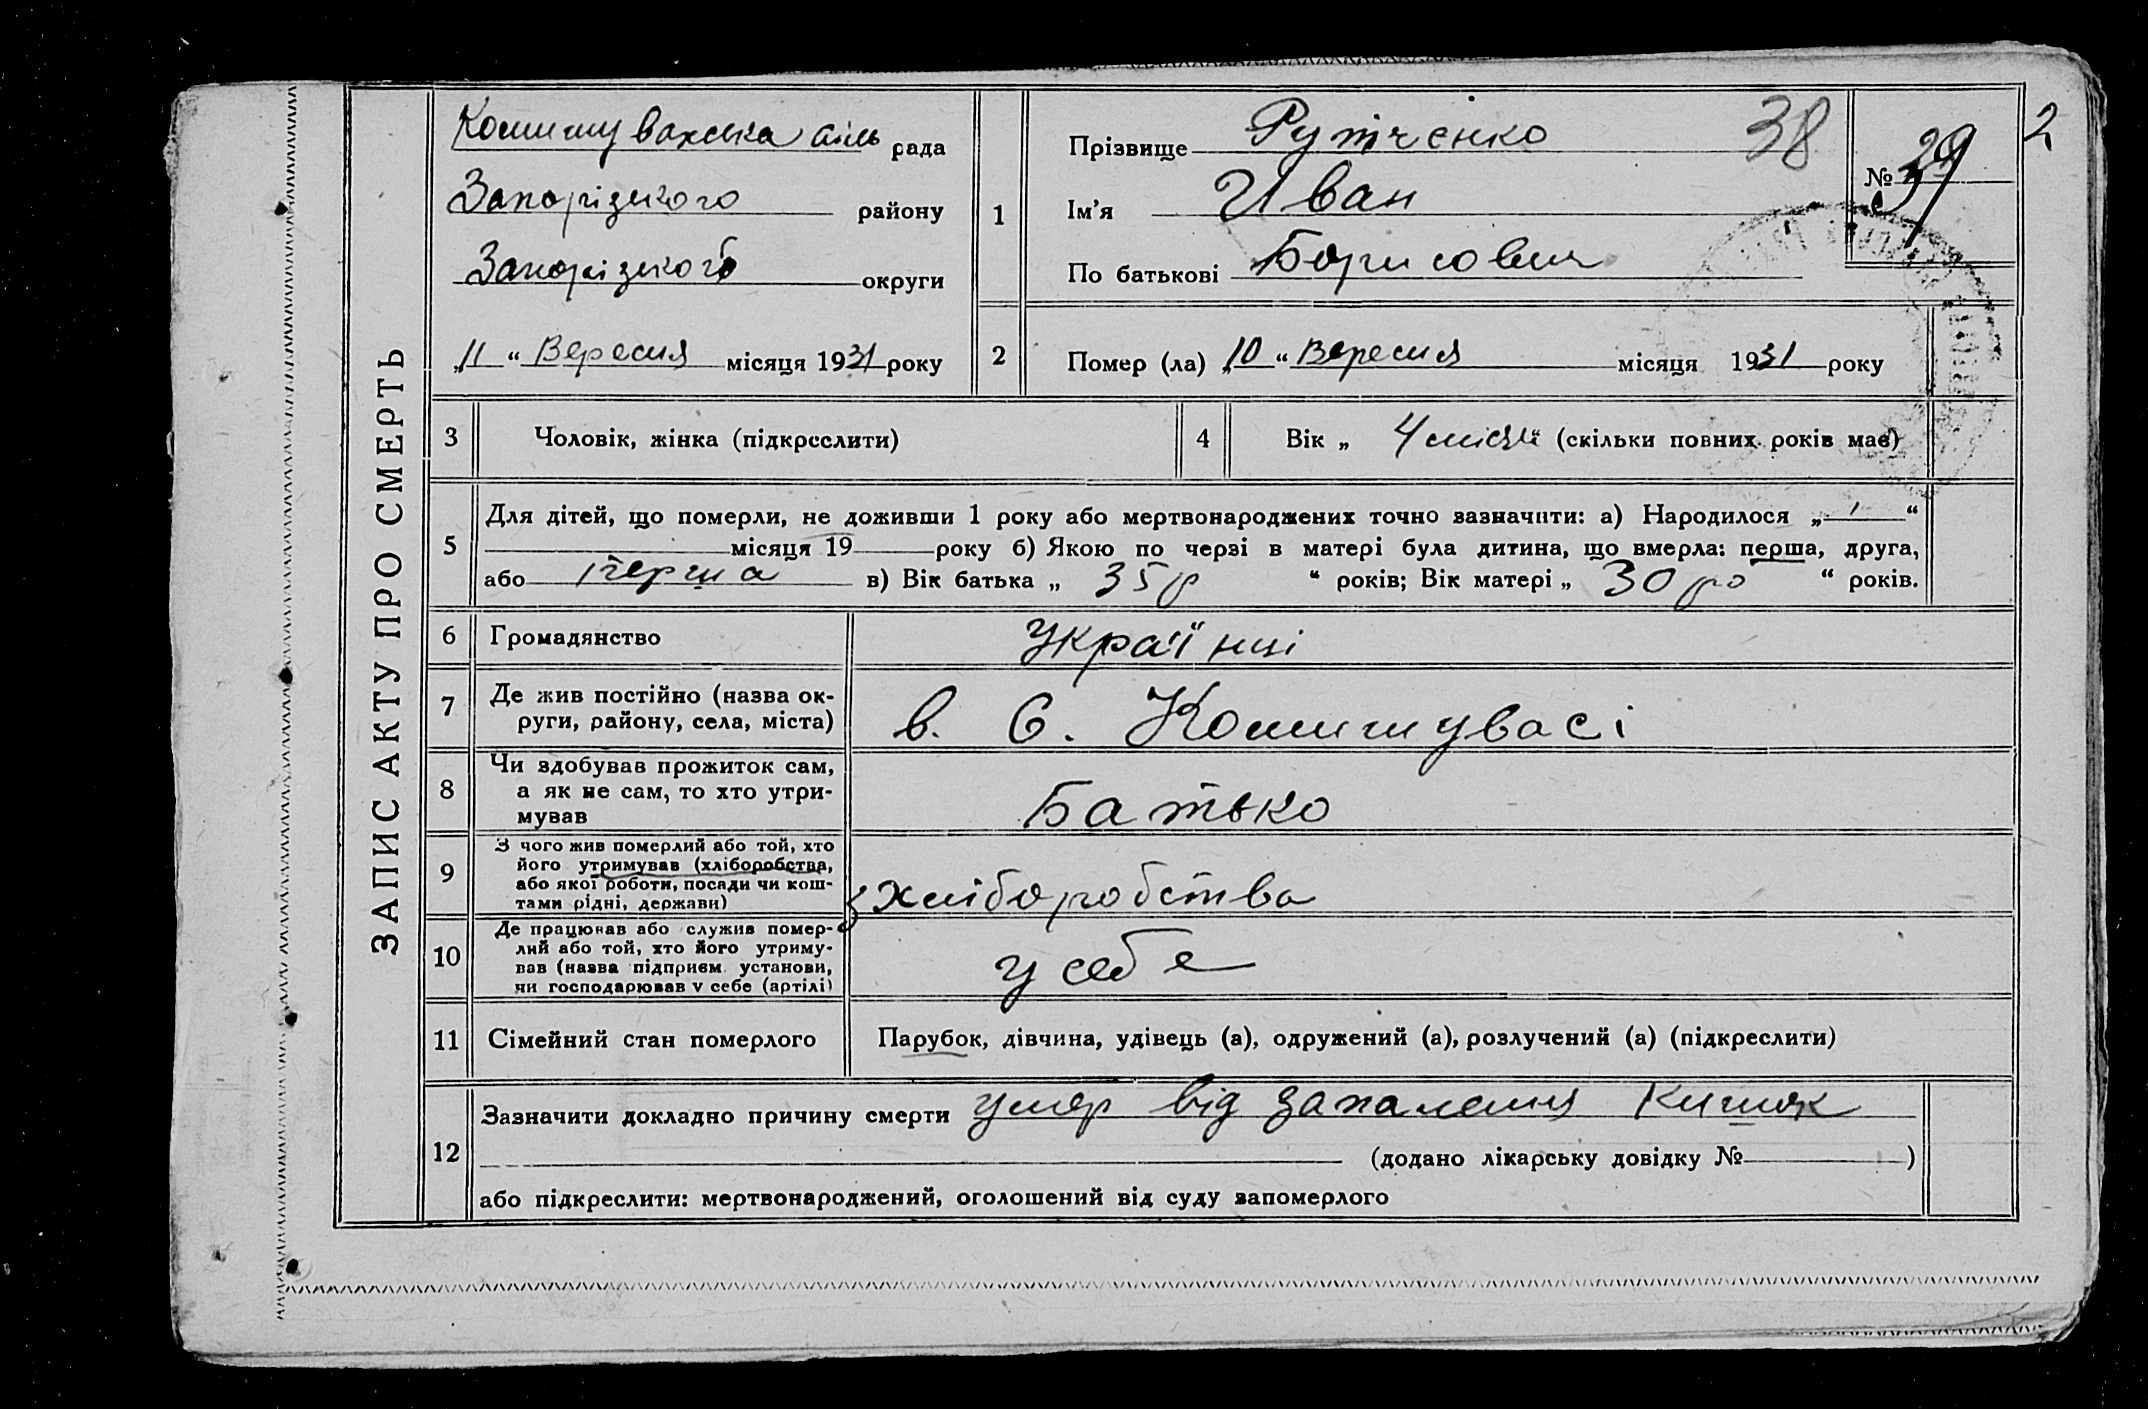 ЗАПИС АКТУ ПРО СМЕРТЬ
Комишуваська сіль рада
Запорізького району
Запорізького округи
„11“ Вересня місяця 1931 року
1
Прізвище Рутченко 38
Ім’я Иван
По батькові Борисович
№ 39
2
2 Помер (ла) „10“ Вересня місяця 1931 року
3 Чоловік, жінка (підкреслити)
4 Вік „ 4 місяці“ (скільки повних років має)
5 Для дітей, що померли, не доживши 1 року або мертвонароджених точно зазначити: а) Народилося „ “
місяця 19 року б) Якою по черзі в матері була дитина, що вмерла: перша, друга,
або перша в) Вік батька „ 35 р “ років; Вік матері „ 30 ро “ років.
6 Громадянство Українці
7 Де жив постійно (назва ок-
руги, району, села, міста) в. С. Комишувасі
8 Чи здобував прожиток сам,
а як не сам, то хто утри-
мував Батько
9 З чого жив померлий або той, хто
його утримував (хліборобства,
або якої роботи, посади чи кош-
тами рідні, держави) з хліборобства
10 Де працював або служив помер-
лий або той, хто його утриму-
вав (назва підприєм. установи,
чи господарював у себе (артілі) у себе
11 Сімейний стан померлого Парубок, дівчина, удівець (а), одружений (а), розлучений (а) (підкреслити)
12 Зазначити докладно причину смерти умер від запалення Кишок
(додано лікарську довідку № )
або підкреслити: мертвонароджений, оголошений від суду запомерлого